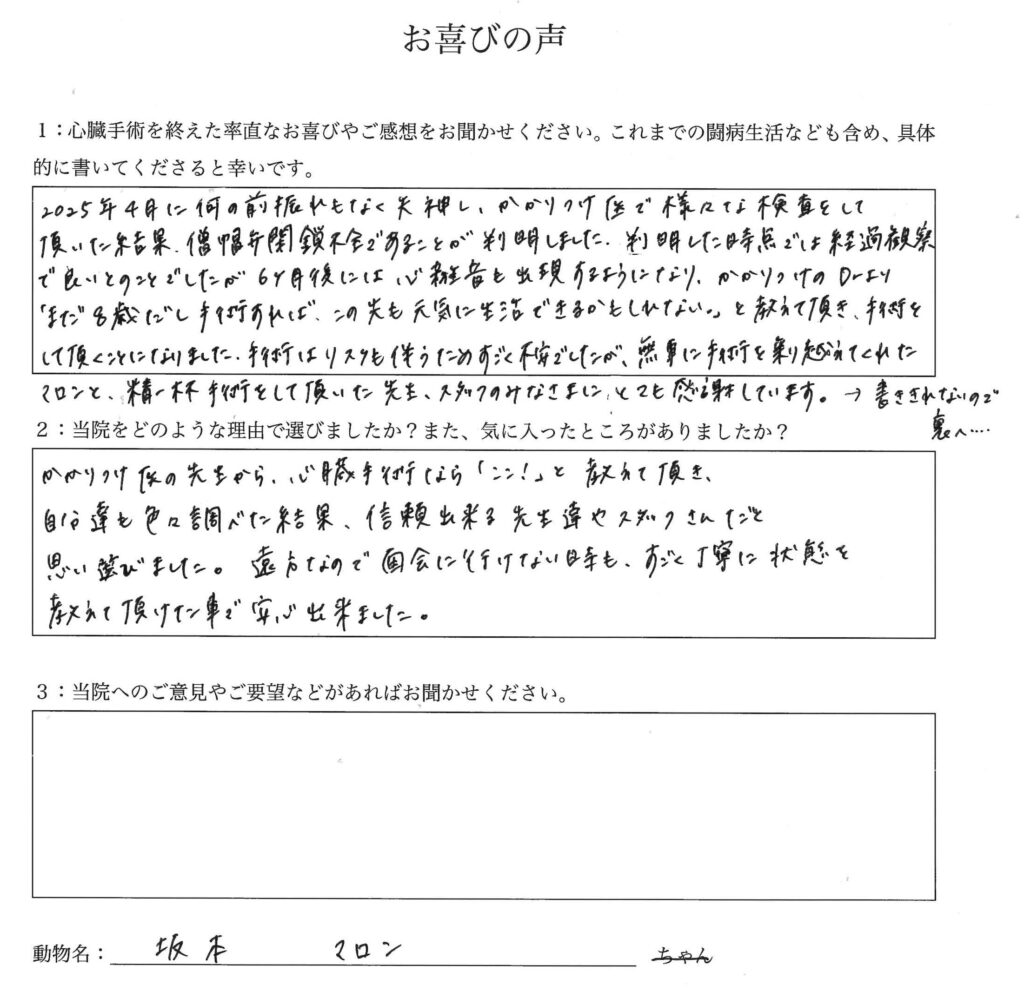 お喜びの声
１：心臓手術を終えた率直なお喜びやご感想をお聞かせください。これまでの闘病生活なども含め、具体
的に書いてくださると幸いです。
2025年4月に何の前振れもなく失神し、かかりつけ医で様々な検査をして
頂いた結果、僧帽弁閉鎖不全であることが判明しました。判明した時点では経過観察
で良いとのことでしたが6ヶ月後には心雑音も出現するようになり、かかりつけのDrより
「まだ8歳だし手術すれば、この先も元気に生活できるかもしれない。」と教えて頂き、手術を
して頂くことになりました。手術はリスクも伴うためすごく不安でしたが、無事に手術を乗り越えてくれた
マロンと、精一杯手術をして頂いた先生、スタッフのみなさまにとても感謝しています。→書ききれないので
裏へ….
２：当院をどのような理由で選びましたか？また、気に入ったところがありましたか？
かかりつけ医の先生から、心臓手術なら「ここ！」と教えて頂き、
自分達も色々調べた結果、信頼出来る先生達やスタッフさんだと
思い選びました。遠方なので面会に行けない時も、すごく丁寧に状態を
教えて頂けた事で安心出来ました。
３：当院へのご意見やご要望などがあればお聞かせください。
動物名：坂本 マロン ちゃん